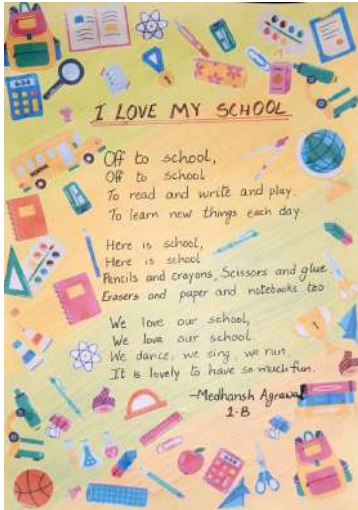 I LOVE MY SCHOOL
Off to school,
Off to school.
To read and write and play.
To learn new things each day.
Here is school,
Here is school
Pencils and crayons, Scissors and glue
Erasers and paper and notebooks too
We love our school,
We love our school.
We dance, we sing, we run,
It is lovely to have so much fun.
-Medhansh Agrawal
1-B